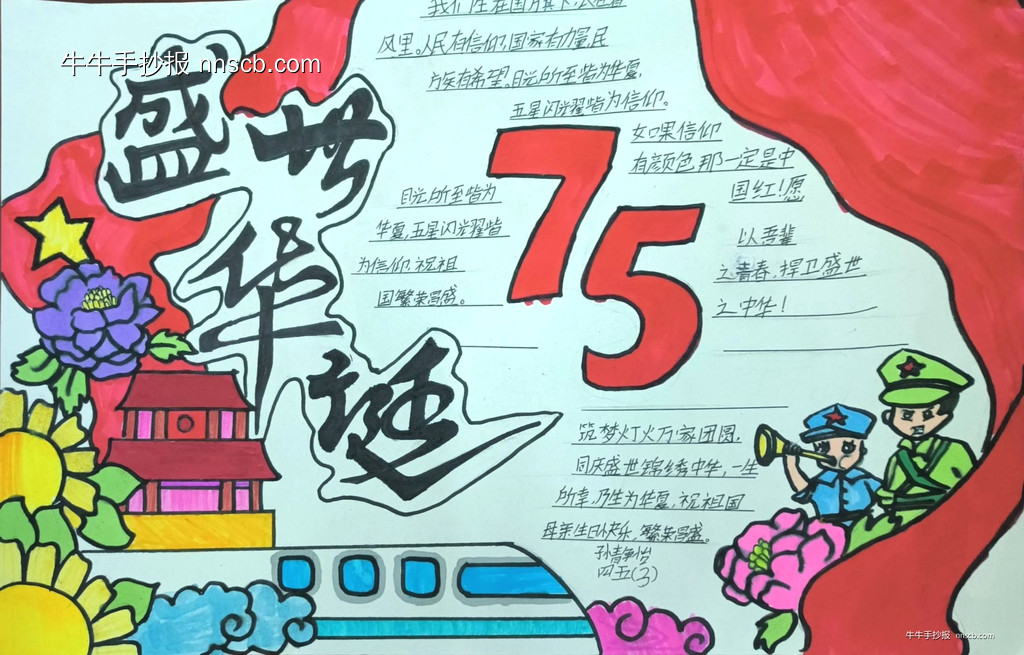 牛牛手抄报 nnscb.com
盛世
华诞
我们生在国旗下,长在春
风里。人民有信仰,国家有力量,民
族有希望。目光所至皆为华夏,
五星闪耀皆为信仰。
如果信仰
有颜色那一定是中
国红!愿
以吾辈
之青春,捍卫盛世
之中华!
目光所至皆为
华夏,五星闪光耀皆
为信仰,祝祖
国繁荣昌盛。
75
筑梦灯火万家团圆,
同庆盛世锦绣中华,一生
所幸,乃生为华夏,祝祖国
母亲生日快乐,繁荣昌盛。
牛牛手抄报 nnscb.com